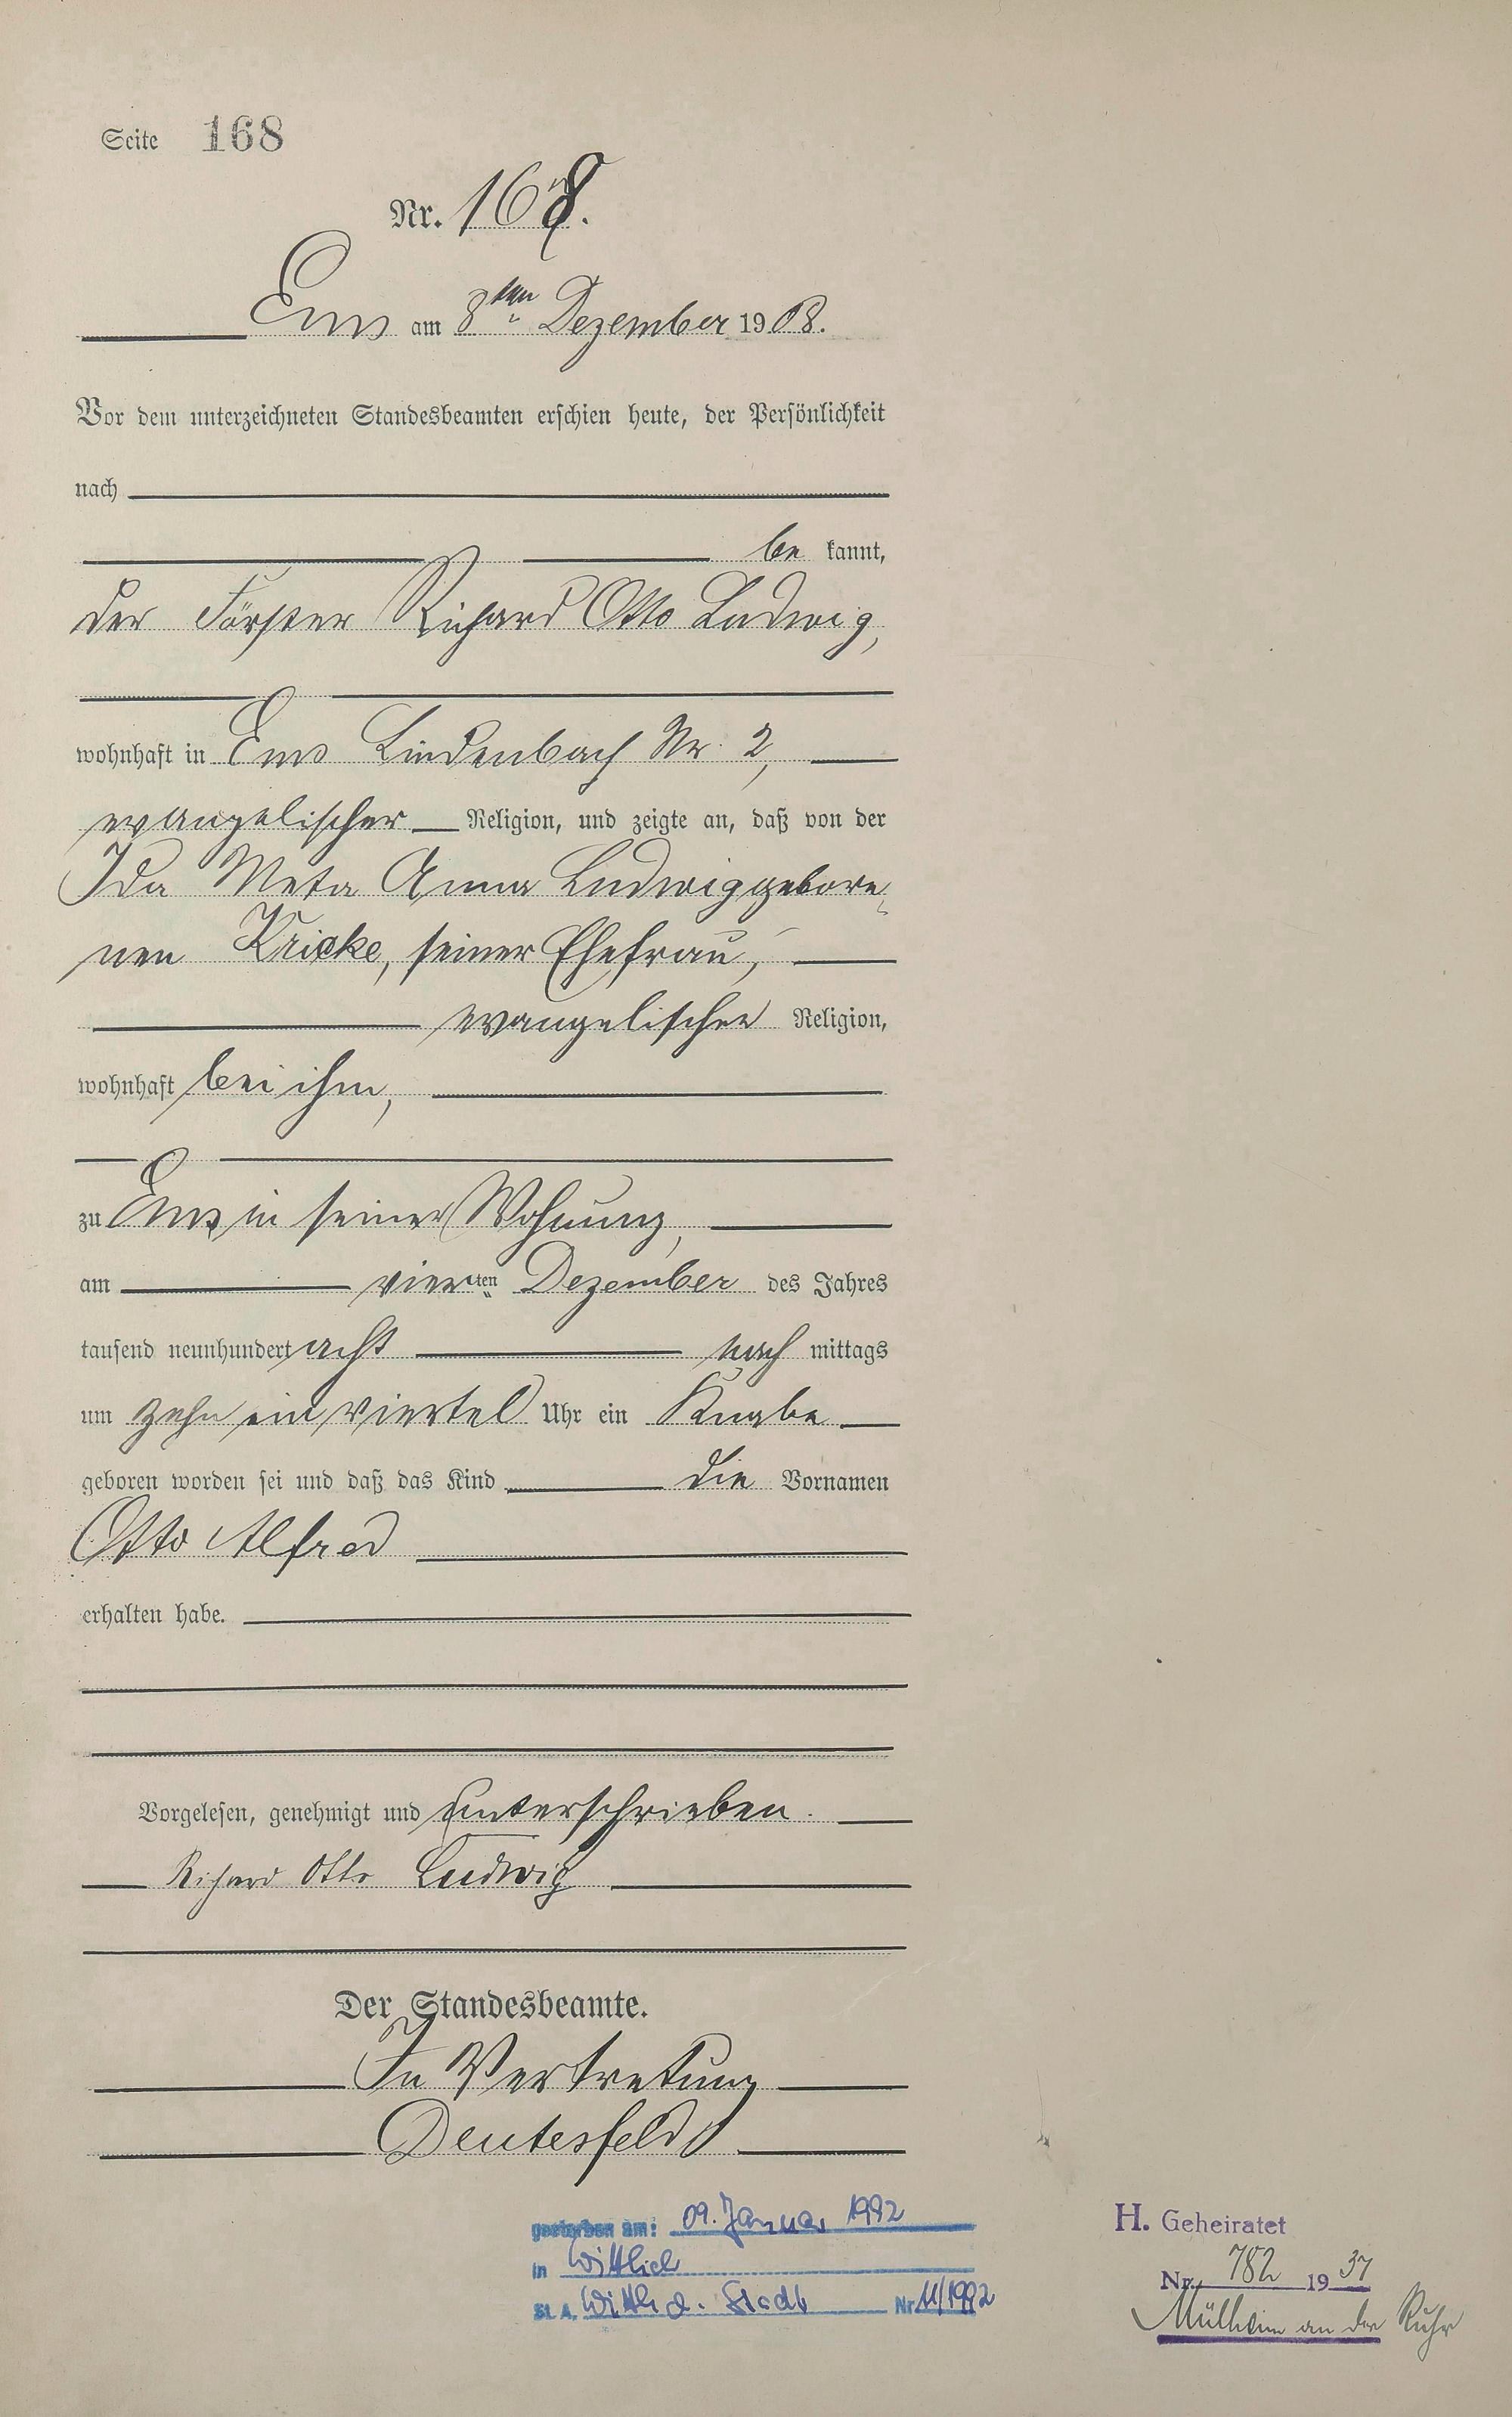 Seite 168
Nr. 168.
Ems am 8ten Dezember 1908.
Vor dem unterzeichneten Standesbeamten erschien heute, der Persönlichkeit
nach
be kannt,
der Förster Richard Otto Ludwig,
wohnhaft in Ems Lindenbach Nr. 2,
evangelischer Religion, und zeigte an, daß von der
Ida Meta Anna Ludwig gebore-
nen Kricke, seiner Ehefrau,
evangelischer Religion,
wohnhaft bei ihm,
zu Ems in seiner Wohnung,
am vierten Dezember des Jahres
tausend neunhundert acht nach mittags
um zehn ein viertel Uhr ein Knabe
geboren worden sei und daß das Kind die Vornamen
Otto Alfred
erhalten habe.
Vorgelesen, genehmigt und unterschrieben.
Richard Otto Ludwig
Der Standesbeamte.
In Vertretung
Deutesfeld
gestorben am: 09. Januar 1992
in Wittlich
St. A. Wittlich-Stadt Nr 11/1992
H. Geheiratet
Nr. 782 1937
Mülheim an der Ruhr